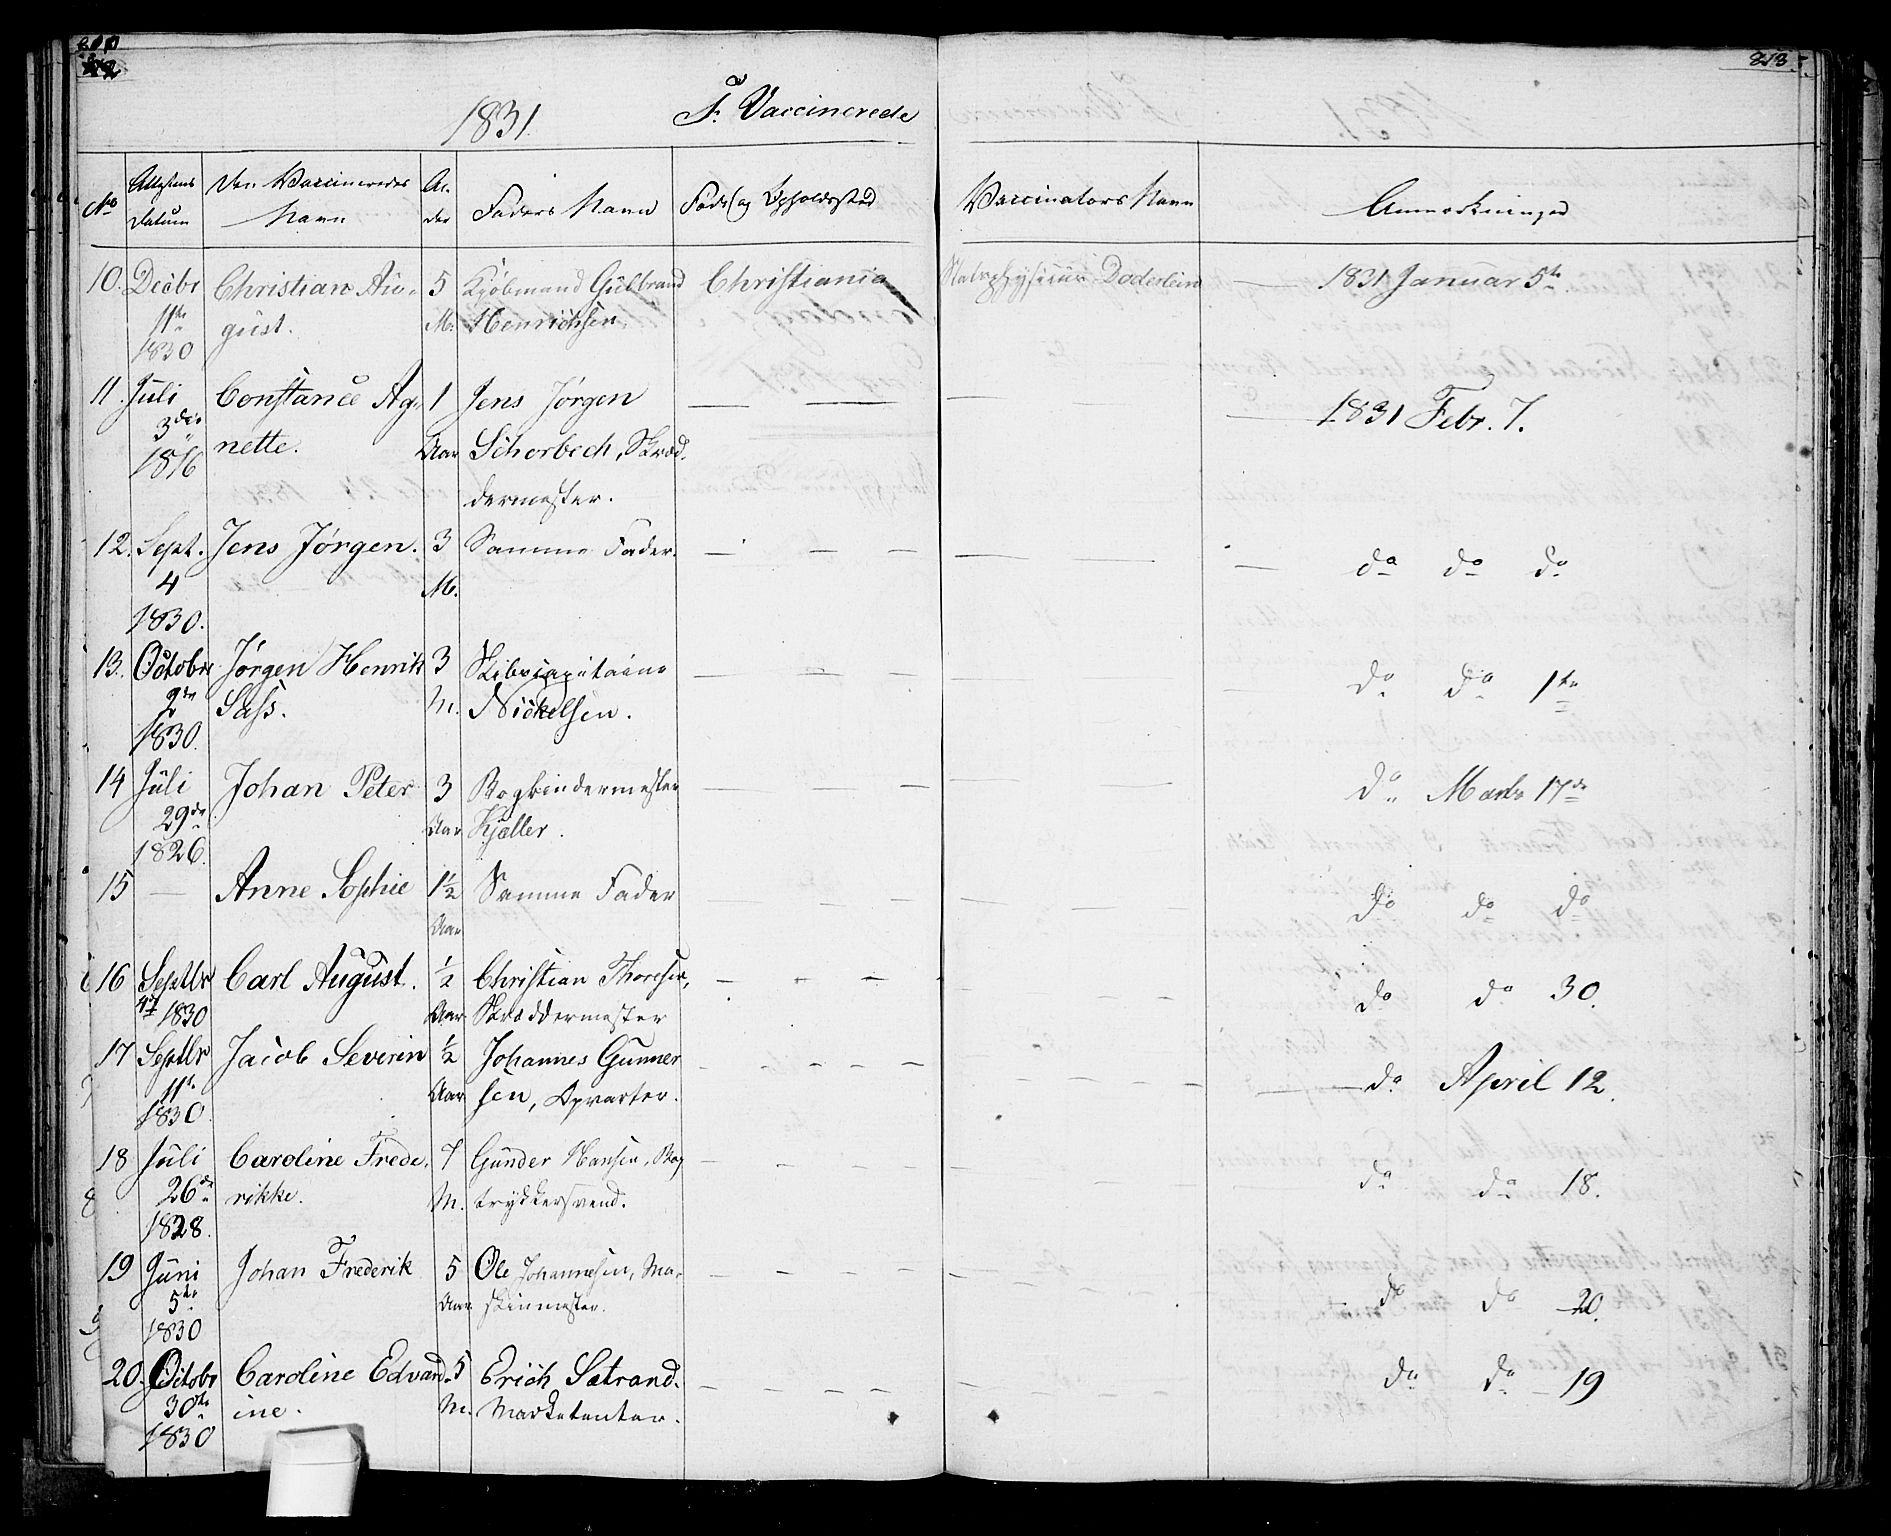 213
1831 F. Vaccinerede
No Attestens Datum Den Vaccineredes Navn Al-der Faders Navn Føde og Opholdssted Vaccinators Navn Anmærkninger
10. Decbr Christian Au- 5 Kjøbmand Gulbrand Christiania Stadsphysicus Døderlein — 1831 Januar 5te
11te gust. M. Henrichsen.
1830
11. Juli Constance Ag- 1 Jens Jørgen — — —
3die nette. Aar Schorbech, Skræd- — 1831 Febr. 7.
1816 dermester.
12. Sept. Jens Jørgen. 3 Samme Fader. — — — — — — do do do
4 M.
1830.
13. October Jørgen Henrik 3 Skibscapitaine — — — — — — do do 1te
2den Sass. M. Nickelsen.
1830.
14 Juli Johan Peter 3 Bogbindermester — — — — do Marts 17de
29de Aar Kjeller.
1826.
15 — Anne Sophie 1½ Samme Fader — — — — do do do
Aar
16 Septbr Carl August. ½ Christian Thoresen, — — — — do do 30.
4de 1830 Aar Skræddermester
17 Septbr Jacob Severin ½ Johannes Gunner — — — — do April 12.
11te Aar sen, Opvarter.
1830.
18 Juli Caroline Frede- 7 Gunder Hansen, Bog — — — — do do 18.
26de rikke. M. trykkersvend.
1828.
19 Juni Johan Frederik 5 Ole Johannesen, Ma- — — — — do do 20.
5te Aar skinmester.
1830
20. Octobr Caroline Edvard- 5 Erich Sætrand. — — — — do do — 19
30te ine. M. Marketenter.
1830